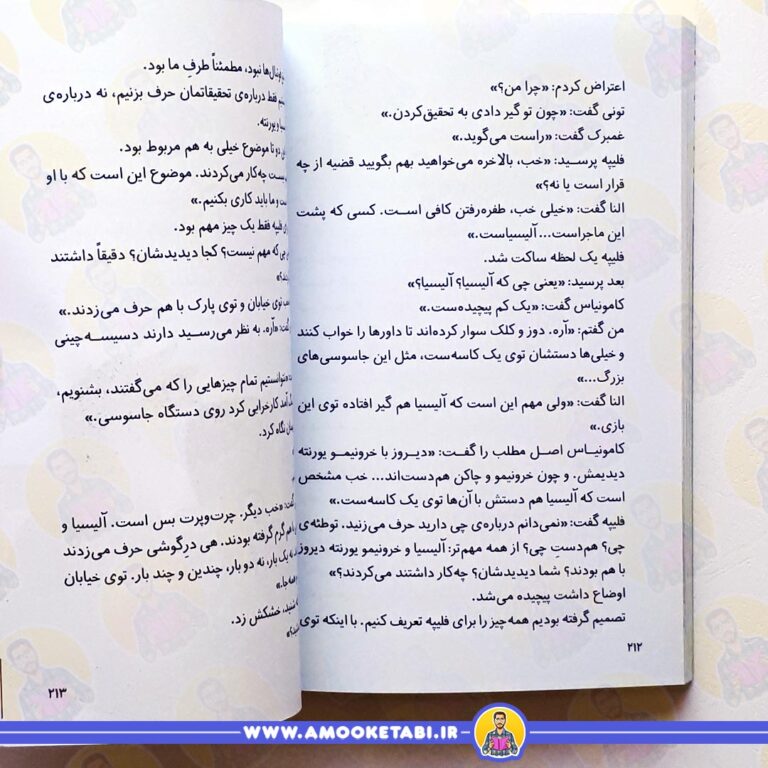 اعتراض کردم: «چرا من؟»
تونی گفت: «چون تو گیر دادی به تحقیق‌کردن.»
غمبرک گفت: «راست می‌گوید.»
فلیپه پرسید: «خب، بالاخره می‌خواهید بهم بگویید قضیه از چه
قرار است یا نه؟»
النا گفت: «خیلی خب، طفره‌رفتن کافی است. کسی که پشت
این ماجراست... آلیسیاست.»
فلیپه یک لحظه ساکت شد.
بعد پرسید: «یعنی چی که آلیسیا؟ آلیسیا؟»
کامونیاس گفت: «یک کم پیچیده‌ست.»
من گفتم: «آره. دوز و کلک سوار کرده‌اند تا داورها را خواب کنند
و خیلی‌ها دستشان توی یک کاسه‌ست، مثل این جاسوسی‌های
بزرگ...»
النا گفت: «ولی مهم این است که آلیسیا هم گیر افتاده توی این
بازی.»
کامونیاس اصل مطلب را گفت: «دیروز با خرونیمو یورنته
دیدیمش. و چون خرونیمو و چاکن هم‌دست‌اند... خب مشخص
است که آلیسیا هم دستش با آن‌ها توی یک کاسه‌ست.»
فلیپه گفت: «نمی‌دانم درباره‌ی چی دارید حرف می‌زنید. توطئه‌ی
چی؟ هم‌دستِ چی؟ از همه مهم‌تر: آلیسیا و خرونیمو یورنته دیروز
با هم بودند؟ شما دیدیدشان؟ چه‌کار داشتند می‌کردند؟»
اوضاع داشت پیچیده می‌شد.
تصمیم گرفته بودیم همه‌چیز را برای فلیپه تعریف کنیم. با اینکه توی
۲۱۲
نبود، مطمئناً طرفِ ما بود.
فقط درباره‌ی تحقیقاتمان حرف بزنیم، نه درباره‌ی
و یورنته.
دو تا موضوع خیلی به هم مربوط بود.
چه‌کار می‌کردند. موضوع این است که با او
و ما باید کاری بکنیم.»
فلیپه فقط یک چیز مهم بود.
چی که مهم نیست؟ کجا دیدیدشان؟ دقیقاً داشتند
توی خیابان و توی پارک با هم حرف می‌زدند.»
«آره. به نظر می‌رسید دارند دسیسه‌چینی
نتوانستیم تمام چیزهایی را که می‌گفتند، بشنویم،
آمد کارخرابی کرد روی دستگاه جاسوسی.»
نگاه کرد.
«خب دیگر. چرت‌وپرت بس است. آلیسیا و
هم گرم گرفته بودند. هی درگوشی حرف می‌زدند
نه یک بار، نه دو بار، چندین و چند بار. توی خیابان
شنید، خشکش زد.
۲۱۳
WWW.AMOOKETABI.IR